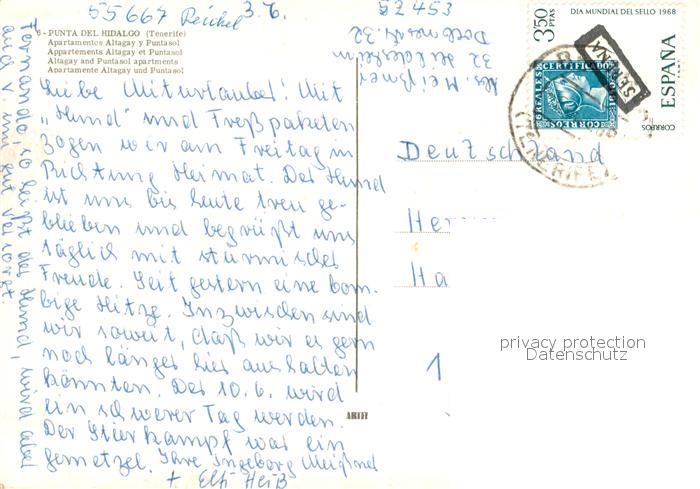 55667 Reichel 3.6.
52 453
6 - PUNTA DEL HIDALGO (Tenerife)
Apartamentos Altagay y Puntasol
Appartements Altagay et Puntasol
Altagay and Puntasol apartments
Apartmente Altagay und Puntasol
Liebe Miturlauber! Mit
„Hund" und Freßpaketen
zogen wir am Freitag in
Richtung Heimat. Der Hund
ist uns bis heute treu ge-
blieben und begrüßt uns
täglich mit stürmischer
Freude. Seit gestern eine bom-
bige Hitze. Inzwischen sind
wir soweit, daß wir es gern
noch länger hier aushalten
könnten. Der 10.6. wird
ein schwerer Tag werden.
Der Stierkampf war ein
gemetzel. Ihre Ingeborg Meißner
+ Elfi Heiß
Fernando, so heißt der Hund, wird aber
auch v. uns gut versorgt.
Abs. Meißner
32 Hildesheim
32
ARIFI
3,50
PTAS
DIA MUNDIAL DEL SELLO 1968
CERTIFICADO
6 REALES
CORREOS
ESPAÑA
CORREOS
(TENERIFE)
Deutschland
Her
Ha
1
privacy protection
Datenschutz